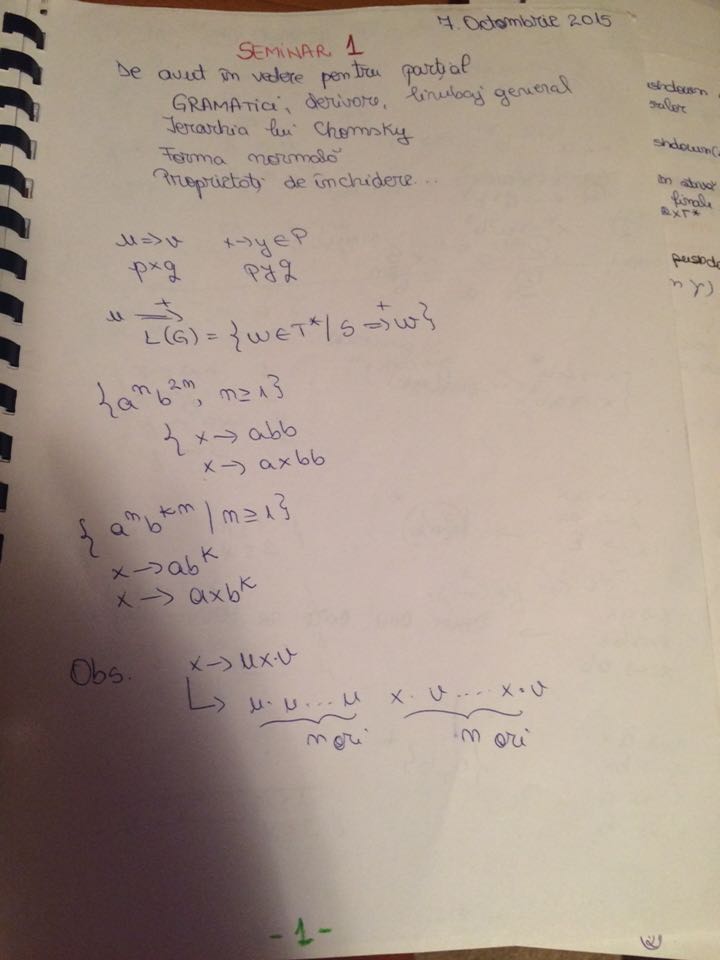 7. Octombrie 2015
SEMINAR 1
De avut în vedere pentru parțial
GRAMATICI, derivare, limbaj general
Ierarhia lui Chomsky
Forma normală
Proprietăți de închidere...
u => v x -> y ∈ P
pxq pyq
u =+=>
L(G) = {w ∈ T* / S =+=> w}
{a^n b^{2n}, n ≥ 1}
{ x -> abb
x -> axbb
{a^n b^{kn} / n ≥ 1}
x -> ab^k
x -> axb^k
Obs. x -> ux·v
↳ u·u...u x·v....x·v
n ori n ori
- 1 -
2